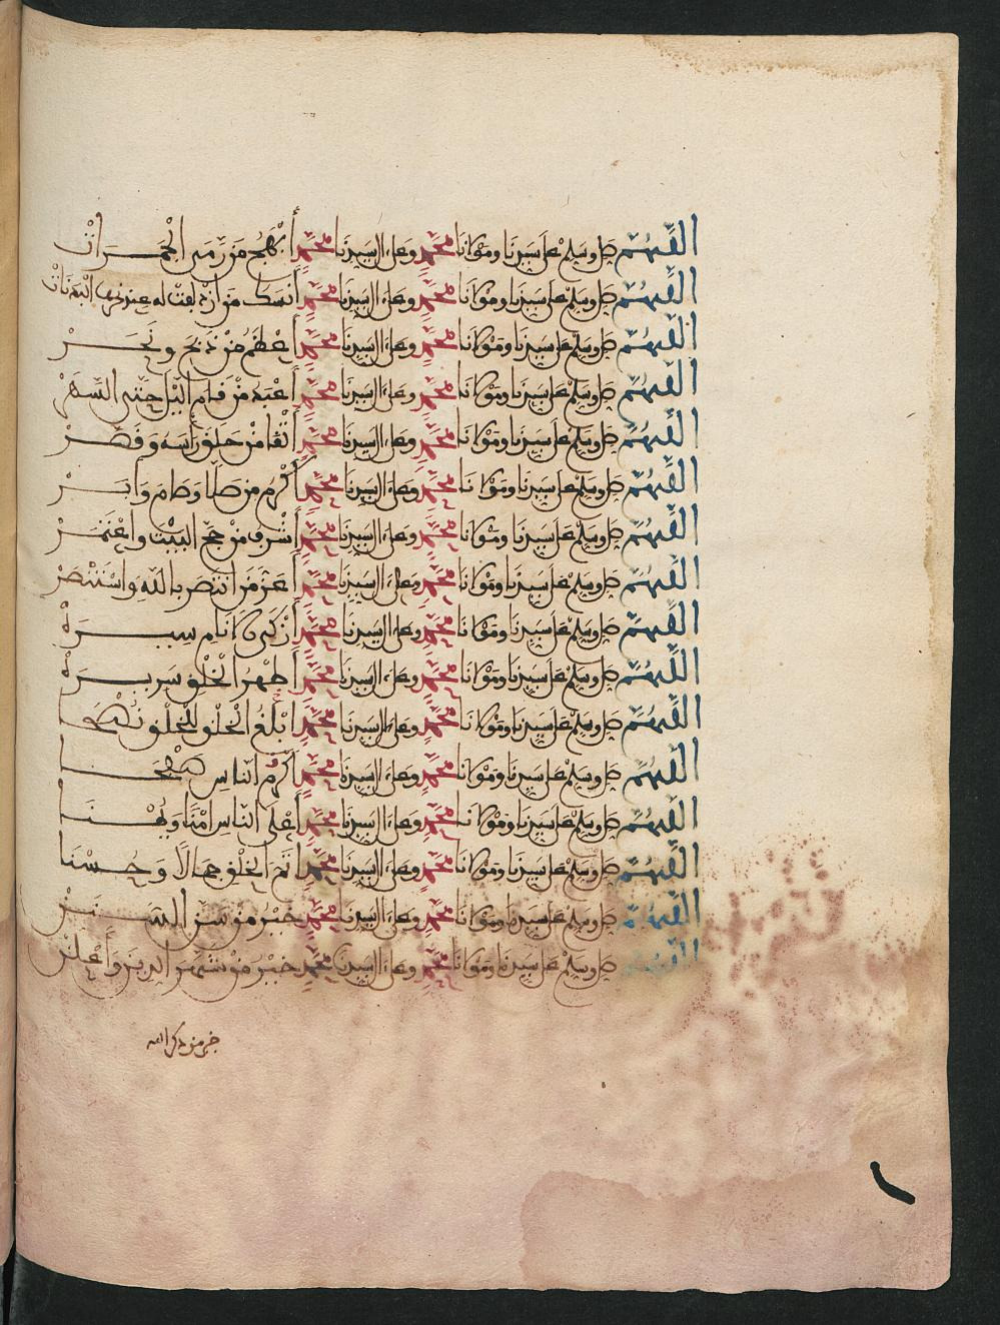 اللهم صل وسلم على سيدنا ومولانا محمد وعلى ءال سيدنا محمد أبهج من رمى الجمرات
اللهم صل وسلم على سيدنا ومولانا محمد وعلى ءال سيدنا محمد أنسك من ازدلفت له عند نحرها البدنات
اللهم صل وسلم على سيدنا ومولانا محمد وعلى ءال سيدنا محمد أعظم من ذبح ونحر
اللهم صل وسلم على سيدنا ومولانا محمد وعلى ءال سيدنا محمد أعبد من قام اليل حتى السحر
اللهم صل وسلم على سيدنا ومولانا محمد وعلى ءال سيدنا محمد أتقا من حلق رأسه وقصر
اللهم صل وسلم على سيدنا ومولانا محمد وعلى ءال سيدنا محمد أكرم من صلا وصام
اللهم صل وسلم على سيدنا ومولانا محمد وعلى ءال سيدنا محمد أشرف من حج البيت واعتمر
اللهم صل وسلم على سيدنا ومولانا محمد وعلى ءال سيدنا محمد أعز من انتصر بالله واستنصر
اللهم صل وسلم على سيدنا ومولانا محمد وعلى ءال سيدنا محمد أزكى الانام سيره
اللهم صل وسلم على سيدنا ومولانا محمد وعلى ءال سيدنا محمد أطهر الخلق سريره
اللهم صل وسلم على سيدنا ومولانا محمد وعلى ءال سيدنا محمد أبلغ الخلق للخلق نصحا
اللهم صل وسلم على سيدنا ومولانا محمد وعلى ءال سيدنا محمد أكرم الناس صفحا
اللهم صل وسلم على سيدنا ومولانا محمد وعلى ءال سيدنا محمد أعلى الناس امنا ويمنا
اللهم صل وسلم على سيدنا ومولانا محمد وعلى ءال سيدنا محمد أتم الخلق جمالا وحسنا
اللهم صل وسلم على سيدنا ومولانا محمد وعلى ءال سيدنا محمد خير من سن السنن
اللهم صل وسلم على سيدنا ومولانا محمد وعلى ءال سيدنا محمد خير من شهر الدين وأعلن
خير من ذكر الله